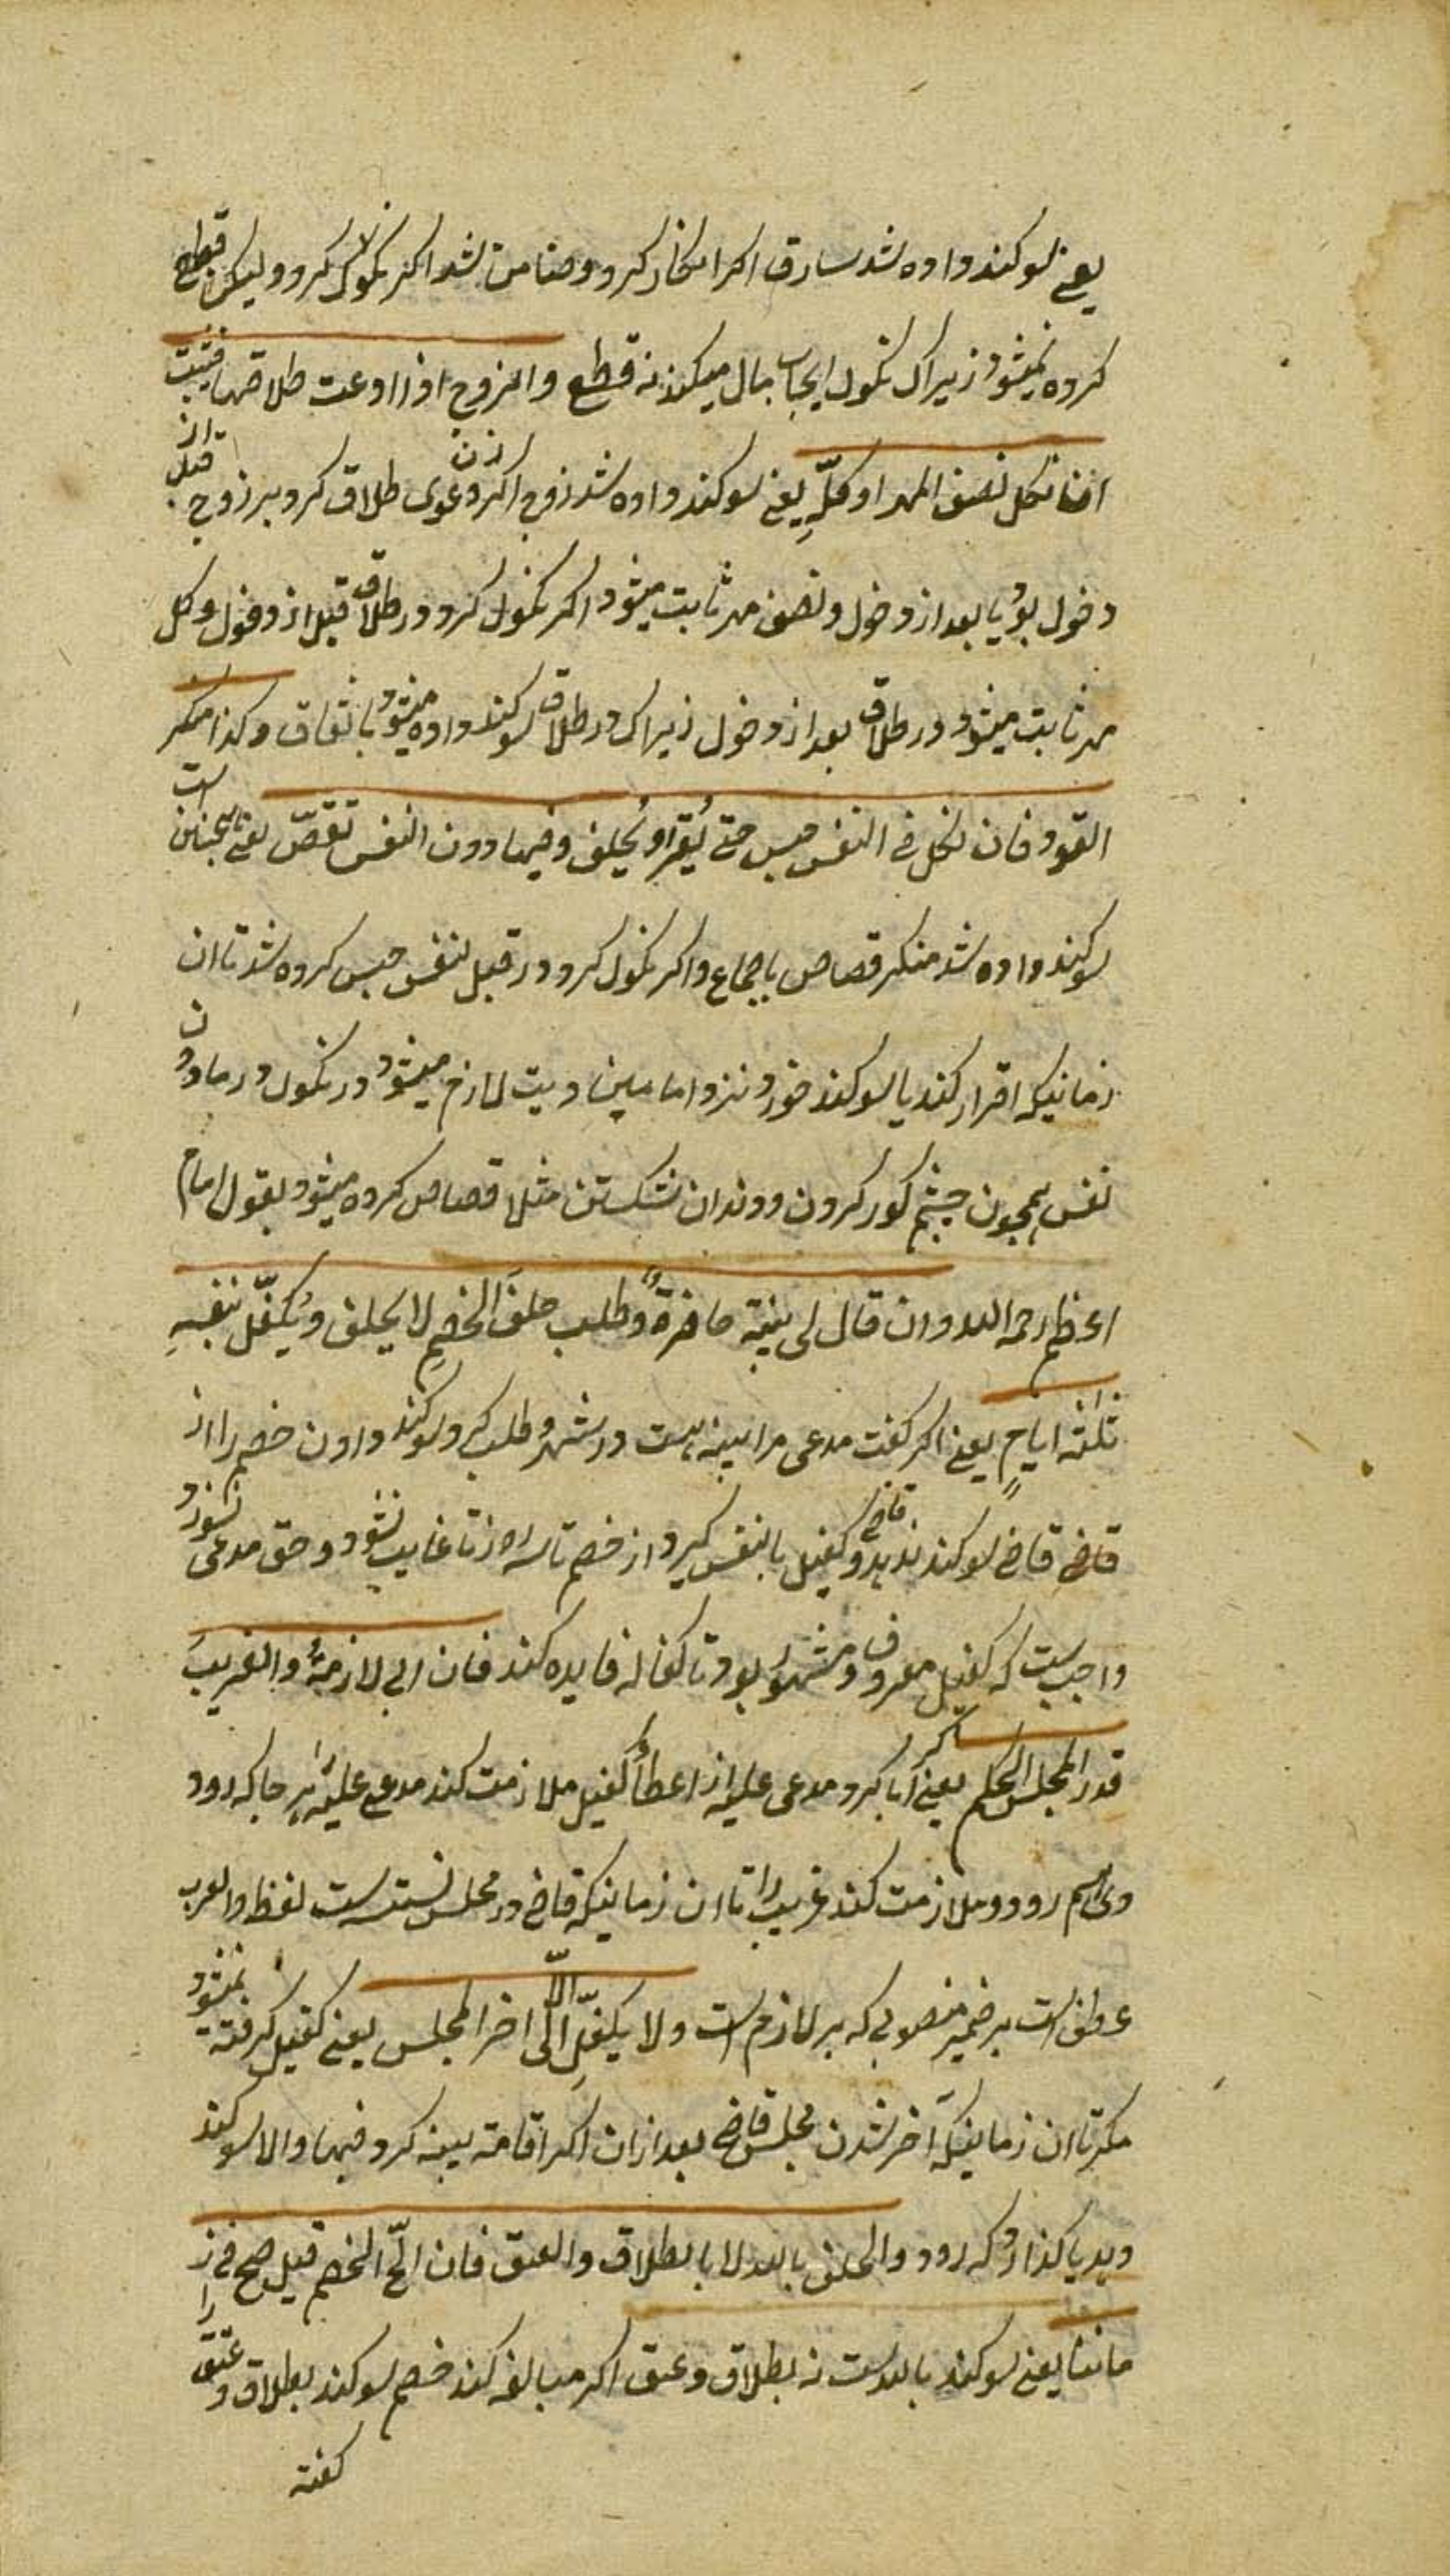 یعنی سوکند داده شد سارق اکر انکار کرد و ضامن شد اکر نکول کرد ولیکن قطع
کرده نمیشود زیراکه نکول ایجاب مال میکند نه قطع والزوج اذا ادعت طلاقها فیثبت
ان نکل نصف المهر او کلّهِ یعنی سوکند داده شد زوج اکر زن دعوی طلاق کرد بر زوج قبل از
دخول بود یا بعد از دخول و نصف مهر ثابت میشود اکر نکول کرد در طلاق قبل از دخول و کل
مهر ثابت میشود در طلاق بعد از دخول زیراکه در طلاق سوکند داده میشود باتفاق وکذا منکر
القود فان نکل فی النفس حبس حتی یُقرّ او یُحلف وفیما دون النفس تقصّ یعنی همچنان است
سوکند داده شد منکر قصاص باجماع و اکر نکول کرد در قتل نفس حبس کرده شد تا ان
زمانیکه اقرار کند یا سوکند خورد و نزد امامین دیت لازم میشود در نکول و در مادون
نفس همچون چشم کور کردن و دندان شکستن مثلا قصاص کرده میشود بقول امام
اعظم رحمه الله وان قال لی بینة حاضرةٌ وطلب حلفَ الخصمِ لا یحلف ویُکفّل بنفسِهِ
ثلثة ایامٍ یعنی اکر کفت مدعی مرا بینه هست در شهر و طلب کرد سوکند دادن خصم را از
قاضی قاضی سوکند ندهد و قاضی کفیل بالنفس کیرد از خصم تا سه روز تا غایب نشود و حق مدعی نسوزد
واجبست که کفیل معروف و مشهور بود تا کفاله فایده کند فان ابی لازمهُ والغریبَ
قدر المجلس الحکم یعنی اکر ابا کرد مدعی علیه از اعطأ کفیل ملازمت کند مدعی علیه را بهر جا که رود
وی هم رود و ملازمت کند غریب را تا ان زمانیکه قاضی در مجلس نشسته است لفظ والغریب
عطف است بر ضمیر منصوبی که بر لازم است ولا یکفّل الّا الی اخر المجلس یعنی کفیل کرفته نمیشود
مکر تا ان زمانیکه آخر شدن مجلس قاضی بعد ازان اکر اقامه بینه کرد فبها والا سوکند
دهد یا کذارد که رود والحلف بالله لا بالطلاق والعتق فان الحّ الخصم قیل صح فی ز
ماننا یعنی سوکند بالله است نه بطلاق و عتق اکر مبالغه کند خصم سوکند بطلاق و عتق را
کفته